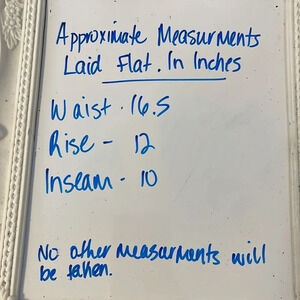 Approximate Measurments
Laid Flat. In Inches
Waist - 16.5
Rise - 12
Inseam - 10
No other measurments will
be taken.